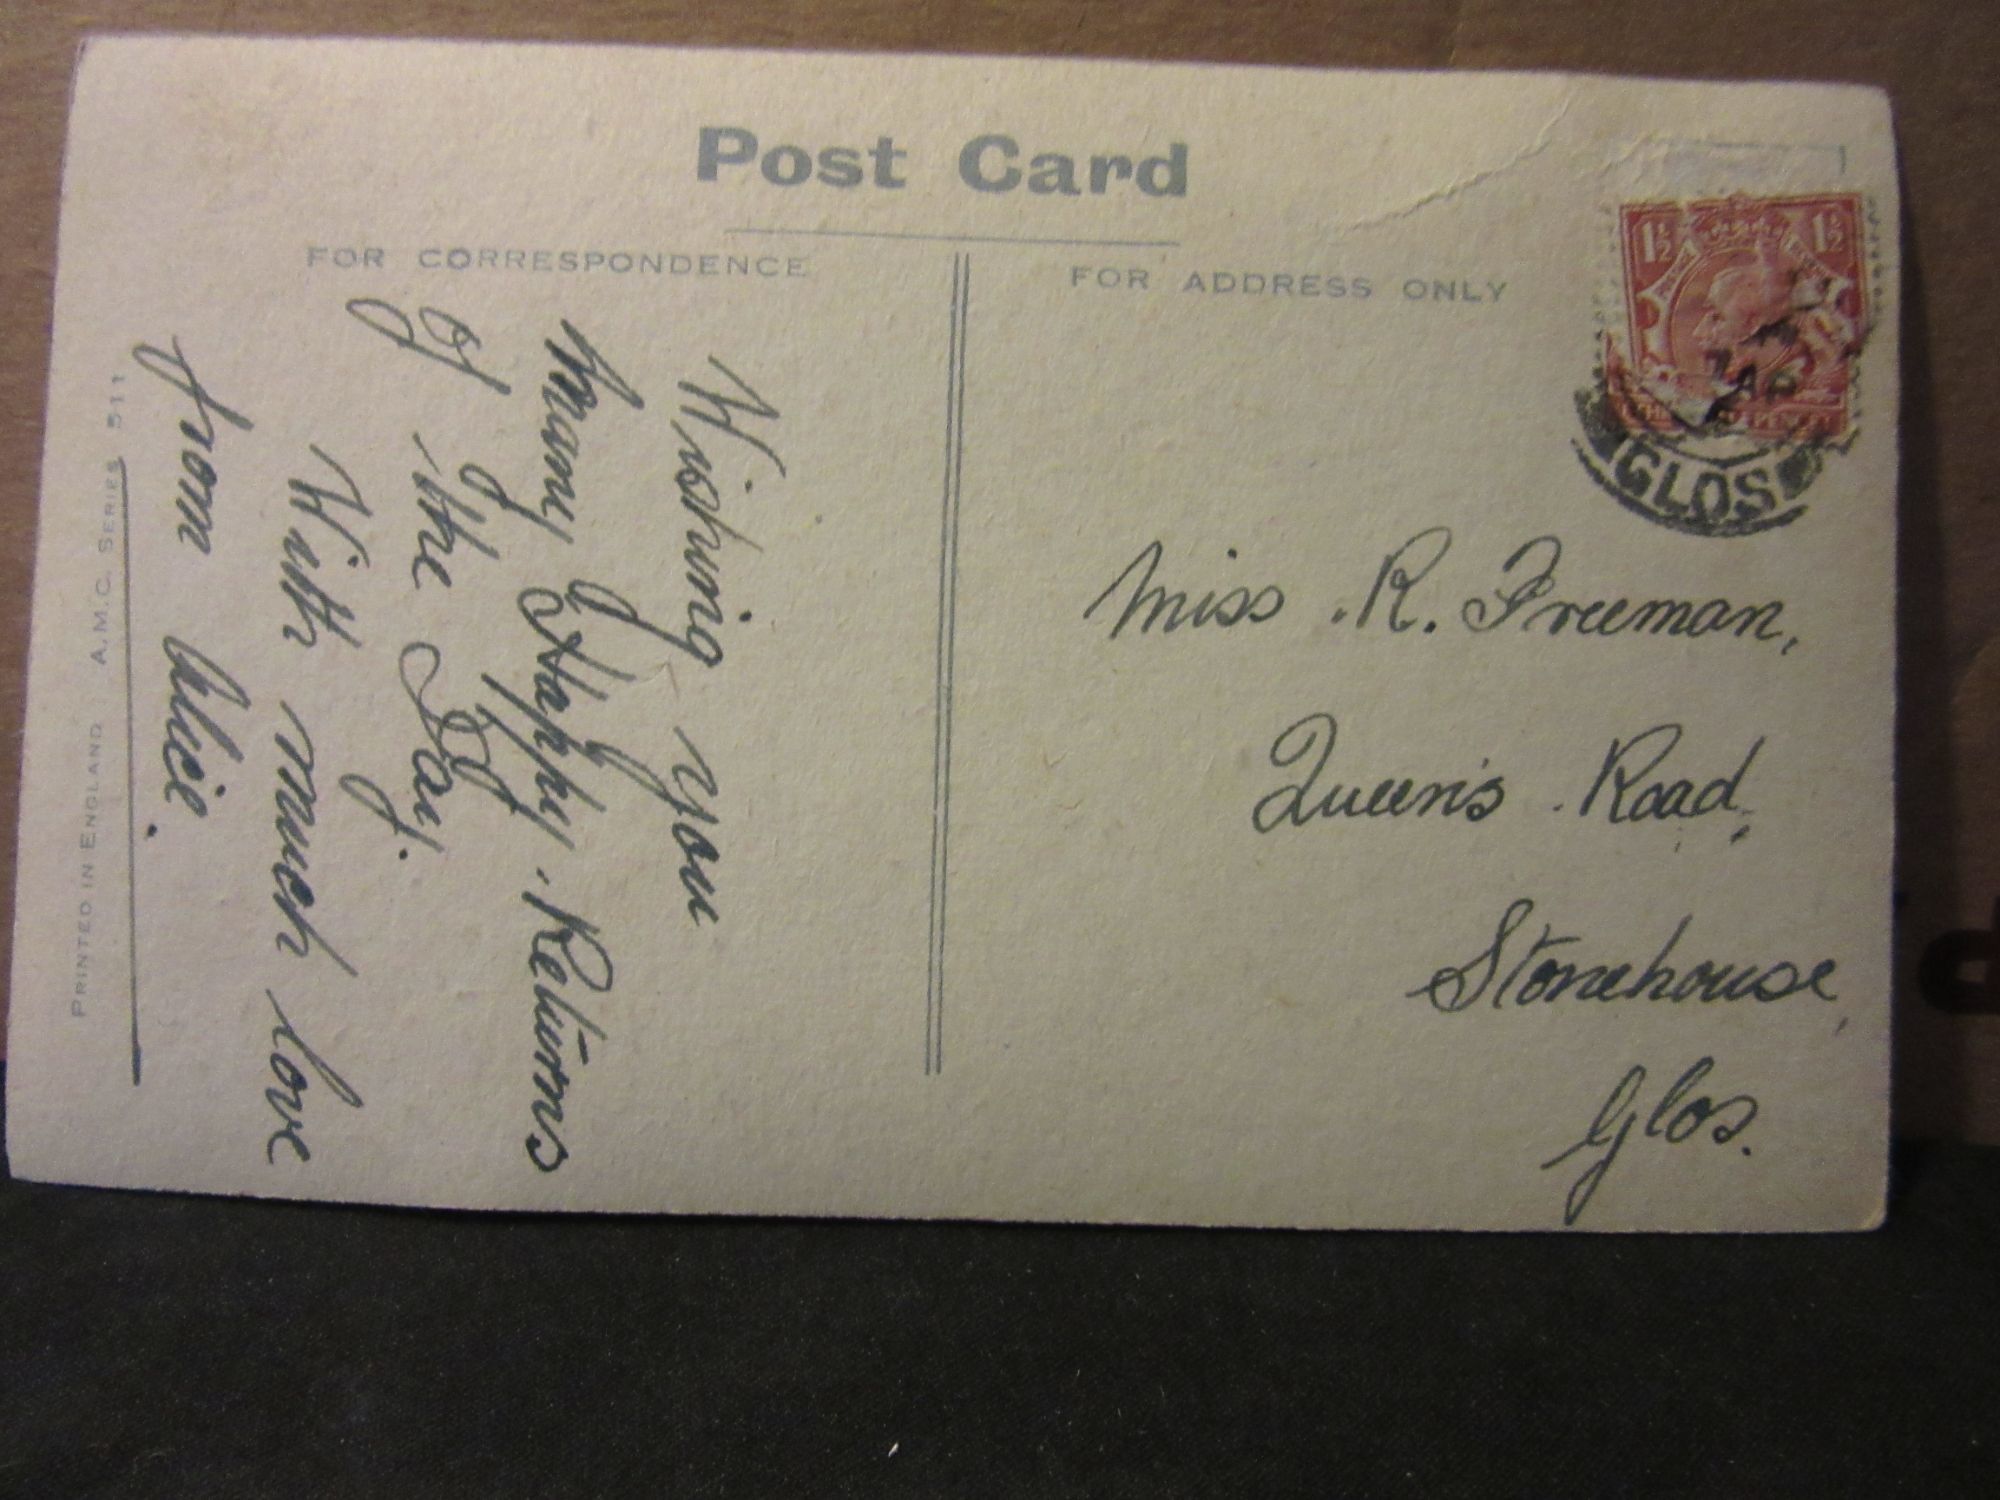 Post Card
FOR CORRESPONDENCE
FOR ADDRESS ONLY
1½ 1½
GLOS
Wishing you
many Happy Returns
of the Day.
With much love
from Alice.
Miss. R. Freeman,
Queen's Road,
Stonehouse,
Glos.
PRINTED IN ENGLAND A.M.C. SERIES 511